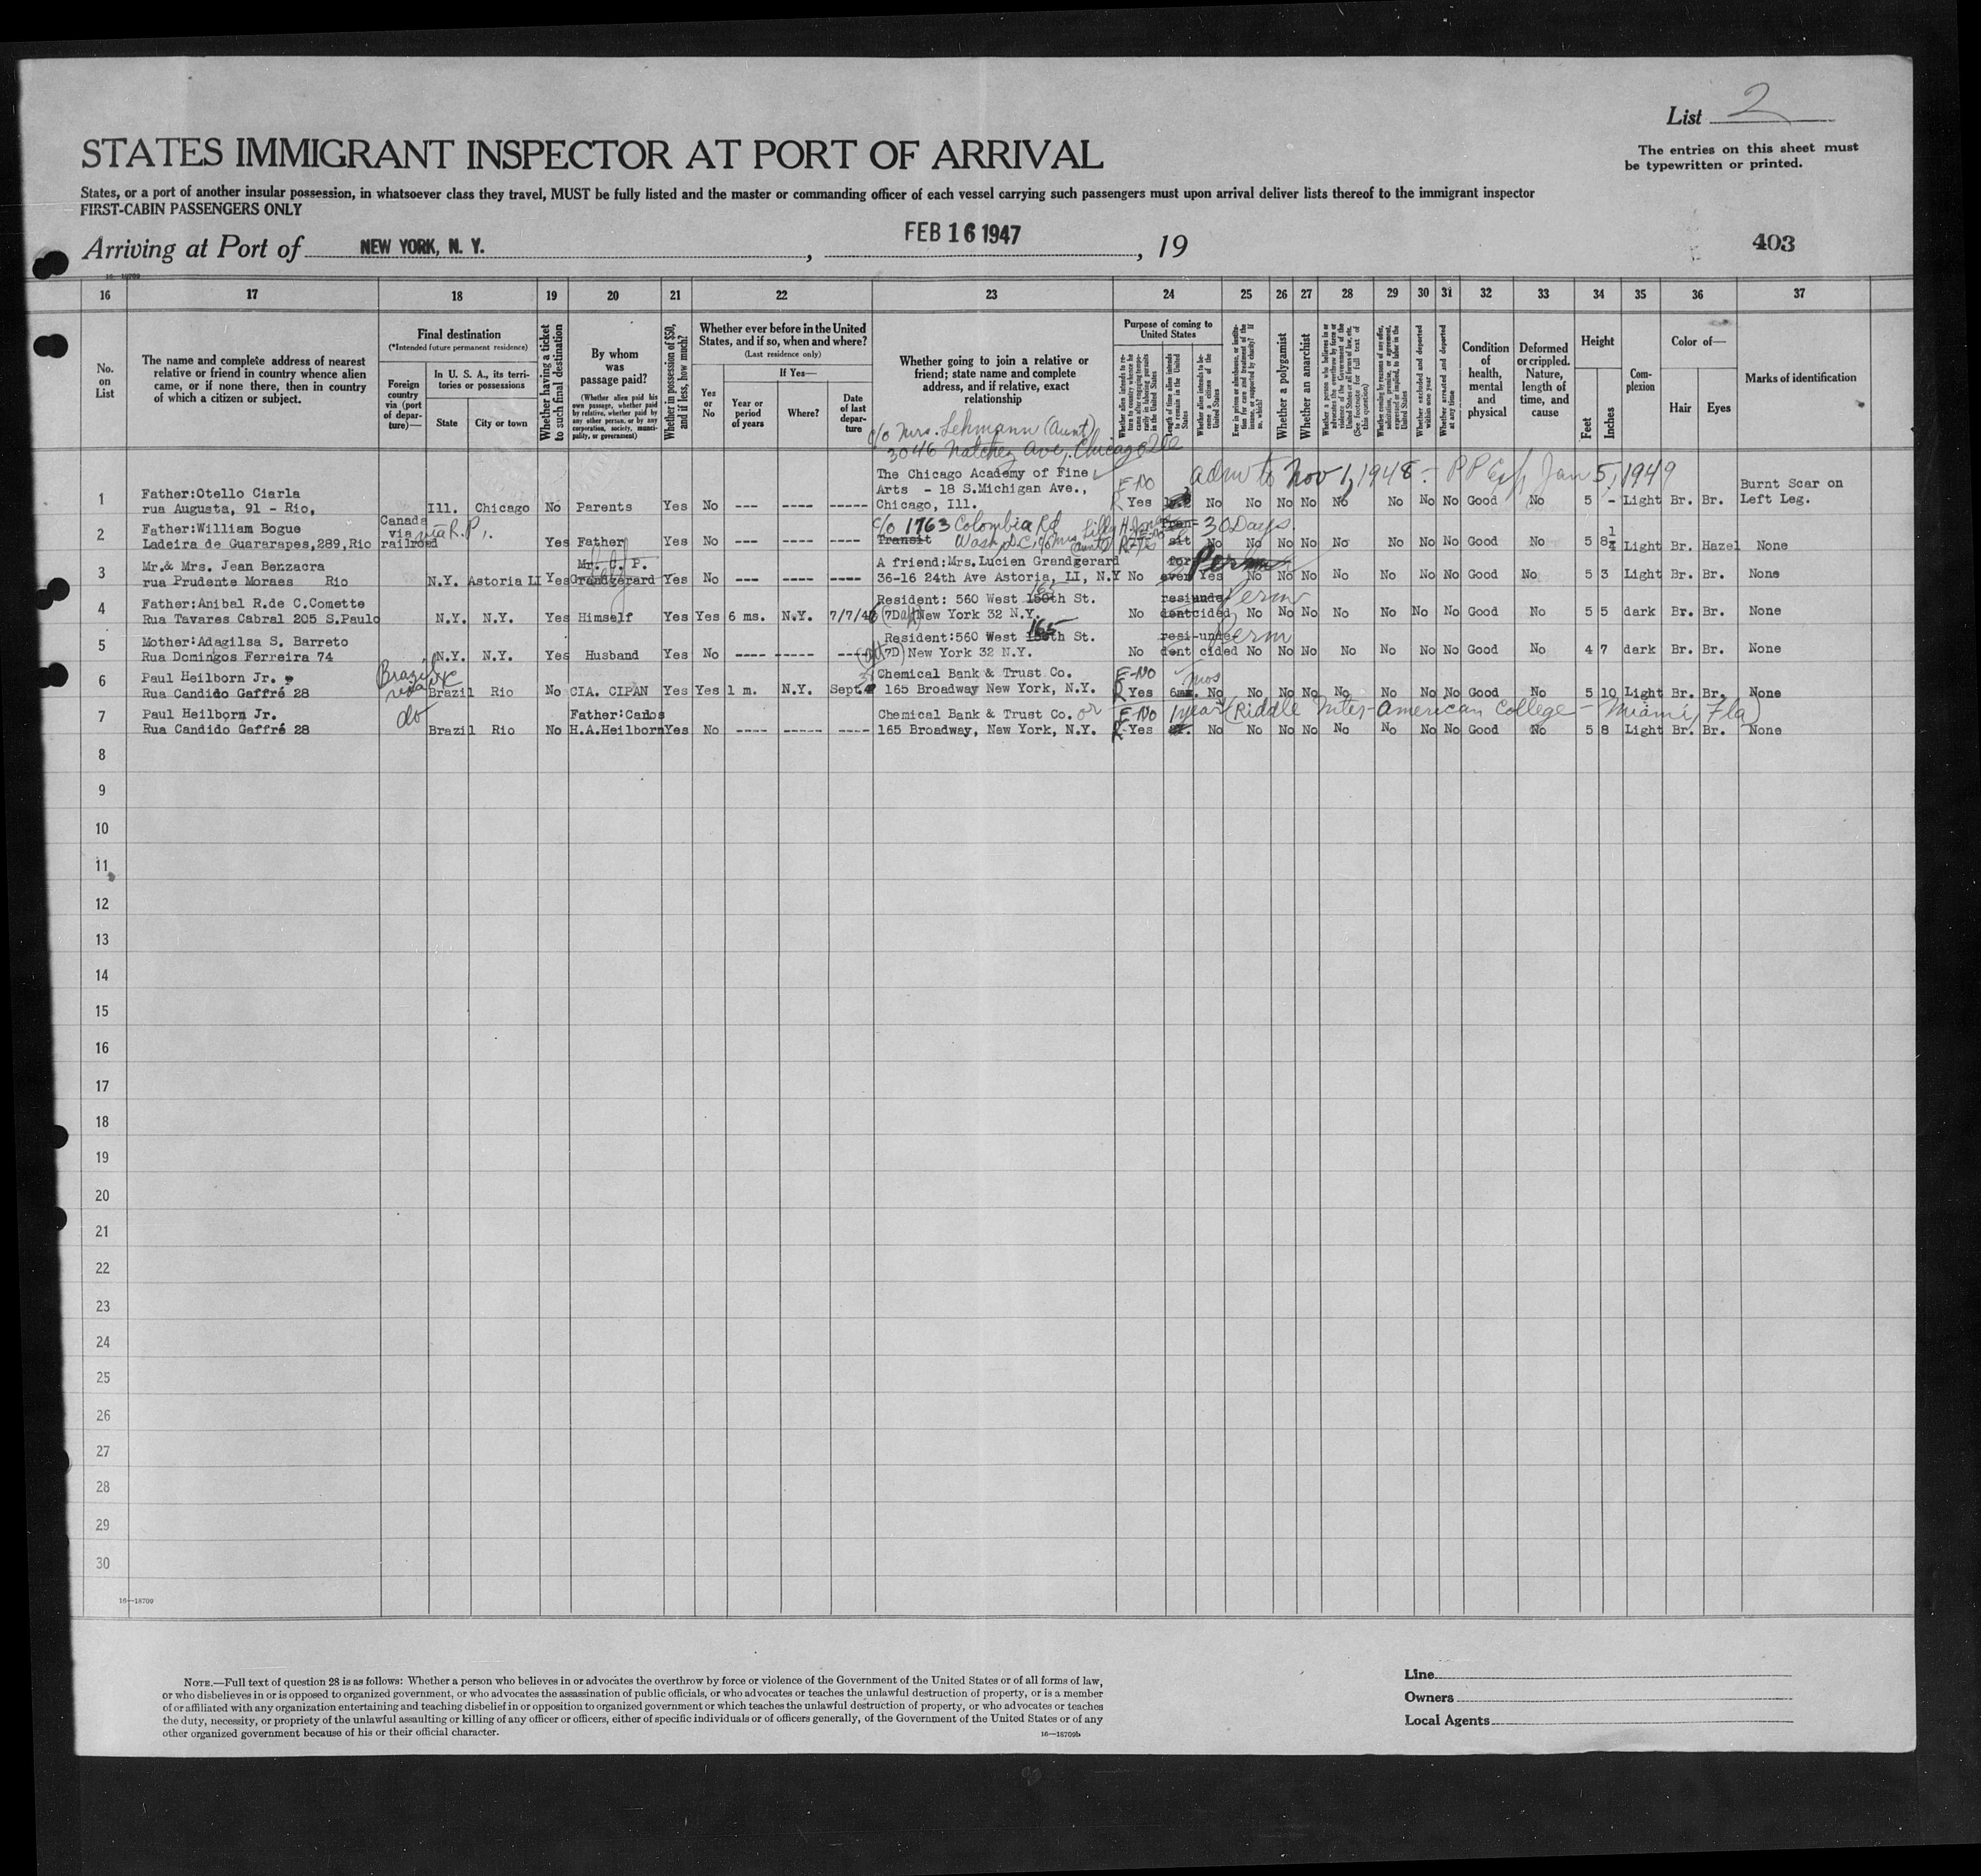 List 2
STATES IMMIGRANT INSPECTOR AT PORT OF ARRIVAL
The entries on this sheet must
be typewritten or printed.
States, or a port of another insular possession, in whatsoever class they travel, MUST be fully listed and the master or commanding officer of each vessel carrying such passengers must upon arrival deliver lists thereof to the immigrant inspector
FIRST-CABIN PASSENGERS ONLY
Arriving at Port of NEW YORK, N. Y., FEB 16 1947, 19
403
16—18709
16 17 18 19 20 21 22 23 24 25 26 27 28 29 30 31 32 33 34 35 36 37
No. on List
The name and complete address of nearest relative or friend in country whence alien came, or if none there, then in country of which a citizen or subject.
Final destination
(*Intended future permanent residence)
Foreign country via (port of departure)—
In U. S. A., its territories or possessions
State
City or town
Whether having a ticket to such final destination
By whom was passage paid?
(Whether alien paid his own passage, whether paid by relative, whether paid by any other person, or by any corporation, society, municipality, or government)
Whether in possession of $50, and if less, how much?
Whether ever before in the United States, and if so, when and where?
(Last residence only)
Yes or No
If Yes—
Year or period of years
Where?
Date of last departure
Whether going to join a relative or friend; state name and complete address, and if relative, exact relationship
Purpose of coming to United States
Whether alien intends to return to country whence he came after engaging temporarily in laboring pursuits in the United States
Length of time alien intends to remain in the United States
Whether alien intends to become a citizen of the United States
Ever in prison or almshouse, or institution for care and treatment of the insane, or supported by charity? If so, which?
Whether a polygamist
Whether an anarchist
Whether a person who believes in or advocates the overthrow by force or violence of the Government of the United States or all forms of law, etc. (See footnote for full text of this question)
Whether coming by reasons of any offer, solicitation, promise, or agreement, expressed or implied, to labor in the United States
Whether excluded and deported within one year
Whether arrested and deported at any time
Condition of health, mental and physical
Deformed or crippled. Nature, length of time, and cause
Height
Feet
Inches
Complexion
Color of—
Hair
Eyes
Marks of identification
c/o Mrs. Lehmann (Aunt)
3046 Natchez Ave, Chicago Ill
The Chicago Academy of Fine adm to Nov 1, 1948 - PP Exp Jan 5, 1949
Father:Otello Ciarla Arts - 18 S.Michigan Ave., F-No Burnt Scar on
1 rua Augusta, 91 - Rio, Ill. Chicago No Parents Yes No --- ---- ----- Chicago, Ill. Yes No No No No No No No No Good No 5 - Light Br. Br. Left Leg.
Father:William Bogue Canada via via R.P. c/o 1763 Colombia Rd Tran- 30 Days
2 Ladeira de Guararapes,289,Rio railroad Yes Father Yes No --- ---- ---- Transit Wash D.C. sit No No No No No No No No Good No 5 8¼ Light Br. Hazel None
Mr.& Mrs. Jean Benzacra Mr. C. P. A friend:Mrs.Lucien Grandgerard for Perm
3 rua Prudente Moraes Rio N.Y. Astoria LI Yes Grandgerard Yes No --- ---- ---- 36-16 24th Ave Astoria, LI, N.Y No ever Yes No No No No No No No Good No 5 3 Light Br. Br. None
Father:Anibal R.de C.Comette Resident: 560 West 165 th St. resi unde Perm
4 Rua Tavares Cabral 205 S.Paulo N.Y. N.Y. Yes Himself Yes Yes 6 ms. N.Y. 7/7/46 (7D apt) New York 32 N.Y. No dent cided No No No No No No No Good No 5 5 dark Br. Br. None
Mother:Adagilsa S. Barreto Resident:560 West 165 th St. resi-unde Perm
5 Rua Domingos Ferreira 74 N.Y. N.Y. Yes Husband Yes No ---- ----- ---- (apt 7D) New York 32 N.Y. No dent cided No No No No No No No Good No 4 7 dark Br. Br. None
Paul Heilborn Jr. Brazil via Chemical Bank & Trust Co. F-No mos
6 Rua Candido Gaffré 28 Brazil Rio No CIA. CIPAN Yes Yes 1 m. N.Y. Sept. 165 Broadway New York, N.Y. Yes 6 No No No No No No No No Good No 5 10 Light Br. Br. None
Paul Heilborn Jr. do Father:Carlos Chemical Bank & Trust Co. or F-No 1 year (Riddle Inter-American College - Miami, Fla)
7 Rua Candido Gaffré 28 Brazil Rio No H.A.Heilborn Yes No ---- ----- ---- 165 Broadway, New York, N.Y. Yes No No No No No No No No Good No 5 8 Light Br. Br. None
8
9
10
11
12
13
14
15
16
17
18
19
20
21
22
23
24
25
26
27
28
29
30
16—18709
NOTE.—Full text of question 28 is as follows: Whether a person who believes in or advocates the overthrow by force or violence of the Government of the United States or of all forms of law,
or who disbelieves in or is opposed to organized government, or who advocates the assassination of public officials, or who advocates or teaches the unlawful destruction of property, or is a member
of or affiliated with any organization entertaining and teaching disbelief in or opposition to organized government or which teaches the unlawful destruction of property, or who advocates or teaches
the duty, necessity, or propriety of the unlawful assaulting or killing of any officer or officers, either of specific individuals or of officers generally, of the Government of the United States or of any
other organized government because of his or their official character.
16—18709b
Line
Owners
Local Agents